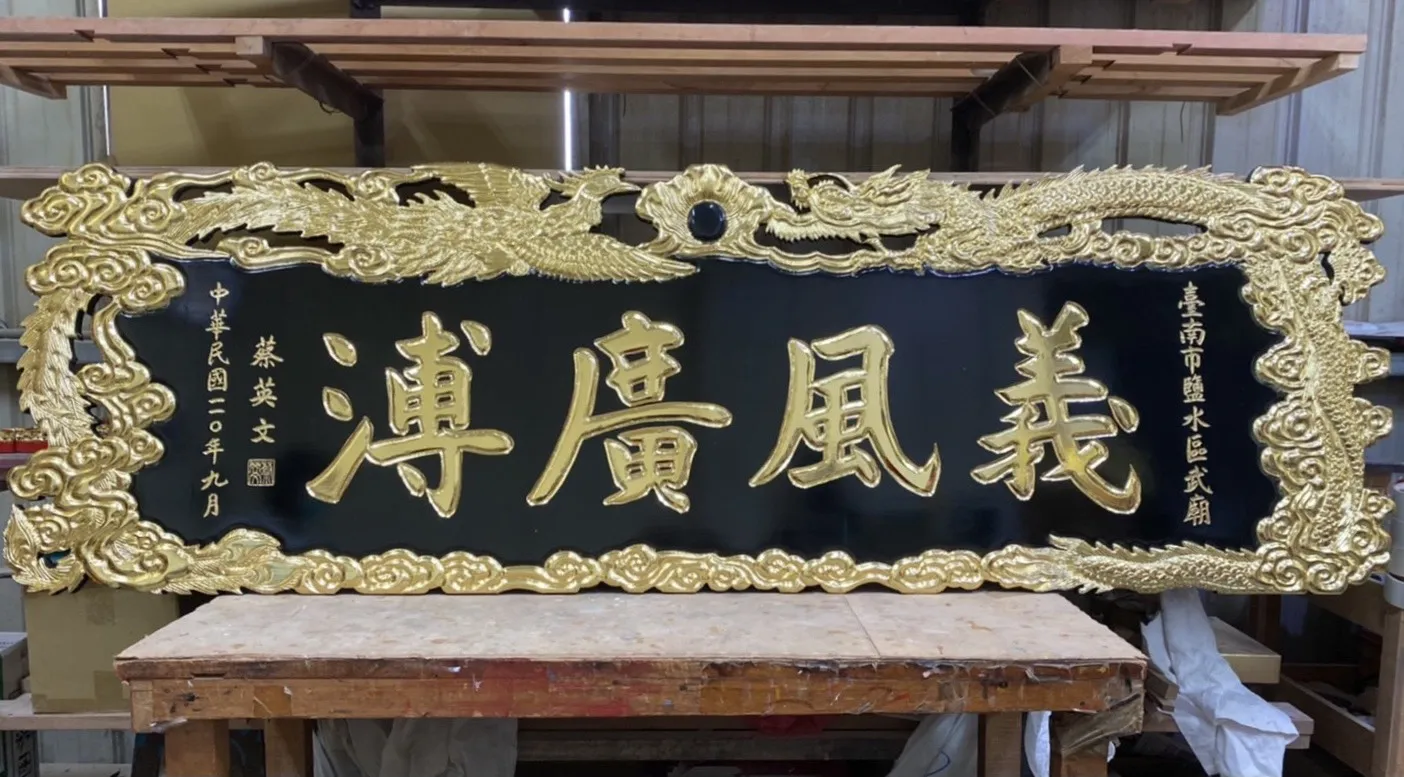 臺南市鹽水區武廟
義風廣溥
蔡英文
中華民國一一〇年九月